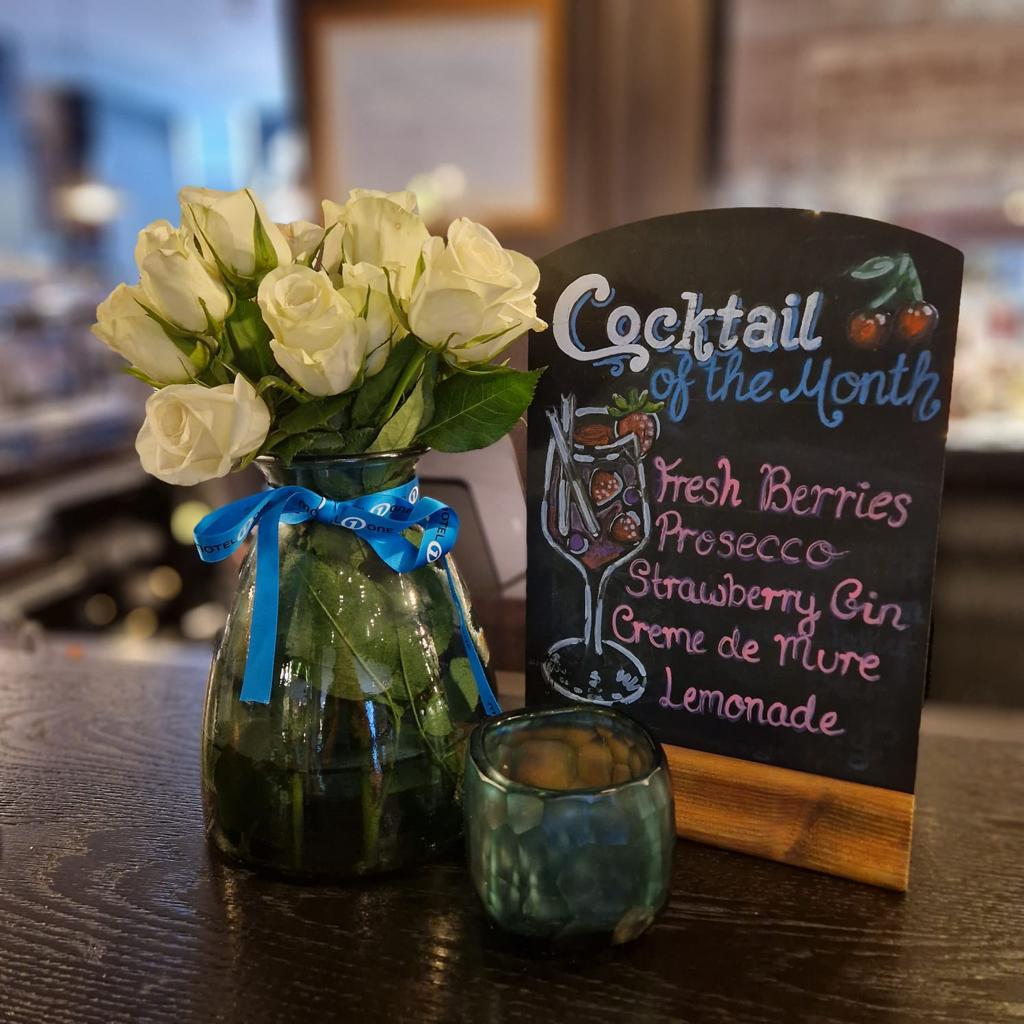 Cocktail
of the Month
Fresh Berries
Prosecco
Strawberry Gin
Creme de Mure
Lemonade
HOTEL 1 ONE
HOTEL 1